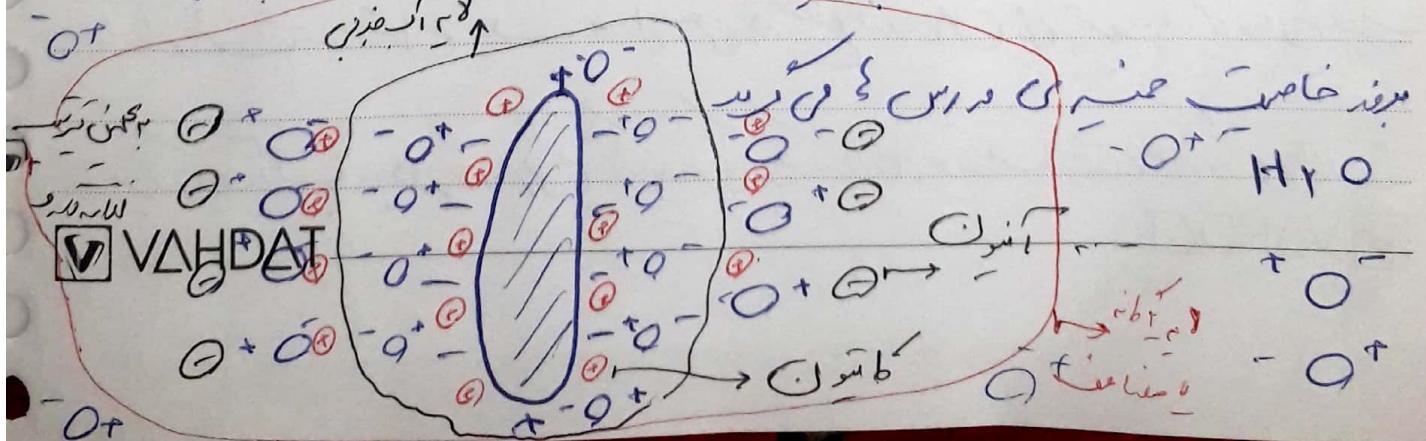 لایه آب جذبی
هرفد خاصیت خمیری درس ٤ می گرید
H۲O
VAHDAT
آنیون
کاتیون
لایه دوگانه
یا مضاعف